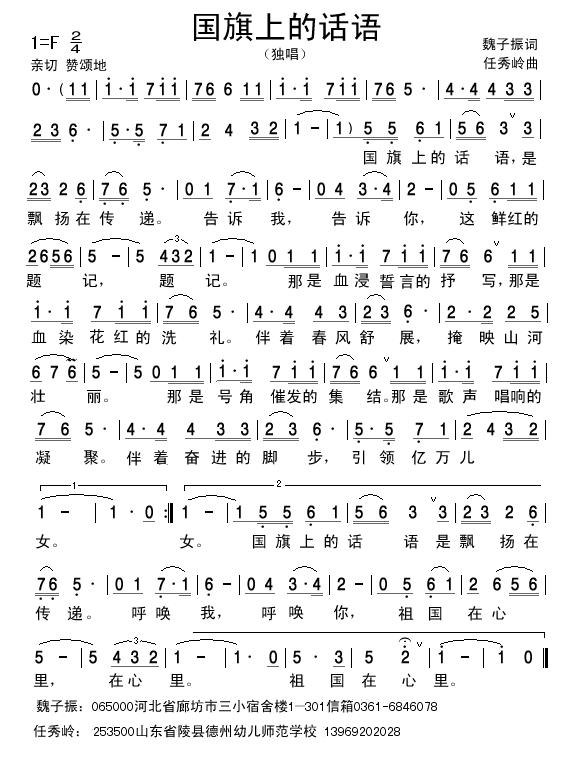 国旗上的话语
(独唱)
1=F 2/4
魏子振词
亲切 赞颂地
任秀岭曲
0·(1 1 | i·i 7 i i | 7 6 6 1 1 | 7 6 7 6 | 5· | 4·4 4 3 3 |
2 3 6· | 5·5 7 1 | 2 4 3 2 | 1 - | 1) 5 5 6 1 | 5 6 3 ∨ 3 |
国旗上的话语,是
2 3 2 6 | 7 6 5· | 0 1 7·1 | 6 - | 0 4 3·4 | 2 - | 0 5 6 1 1 |
飘扬在传递。告诉我,告诉你,这鲜红的
2 6 5 6 | 5 - | 5 4 3 2 | 1 - | 1 0 1 1 | i·i 7 i i | 7 6 ∨ 1 1 |
题记,题记。那是血浸誓言的抒写,那是
i·i 7 i i | 7 6 5· | 4·4 4 3 | 2 3 6· | 2·2 2 5 |
血染花红的洗礼。伴着春风舒展,掩映山河
6 7 6 | 5 - | 5 0 1 1 | i·i 7 i i | 7 6 ∨ 1 1 | i·i 7 i i |
壮丽。那是号角催发的集结。那是歌声唱响的
7 6 5· | 4·4 4 3 3 | 2 3 6· | 5·5 7 1 | 2 4 3 2 |
凝聚。伴着奋进的脚步,引领亿万儿
1 2
1 - | 1·0 :‖ 1 - | 1 5 5 6 1 | 5 6 3 ∨ 3 | 2 3 2 6 |
女。女。国旗上的话语是飘扬在
7 6 5· | 0 1 7·1 | 6 - | 0 4 3·4 | 2 - | 0 5 6 1 | 2 6 5 6 |
传递。呼唤我,呼唤你,祖国在心
5 - | 5 4 3 2 | 1 - | 1 0· | 3·5 | 5 2 ∨ | 1 - | 1 - ‖
里,在心里。祖国在心里。
魏子振:065000河北省廊坊市三小宿舍楼1—301信箱0361-6846078
任秀岭: 253500山东省陵县德州幼儿师范学校 13969202028